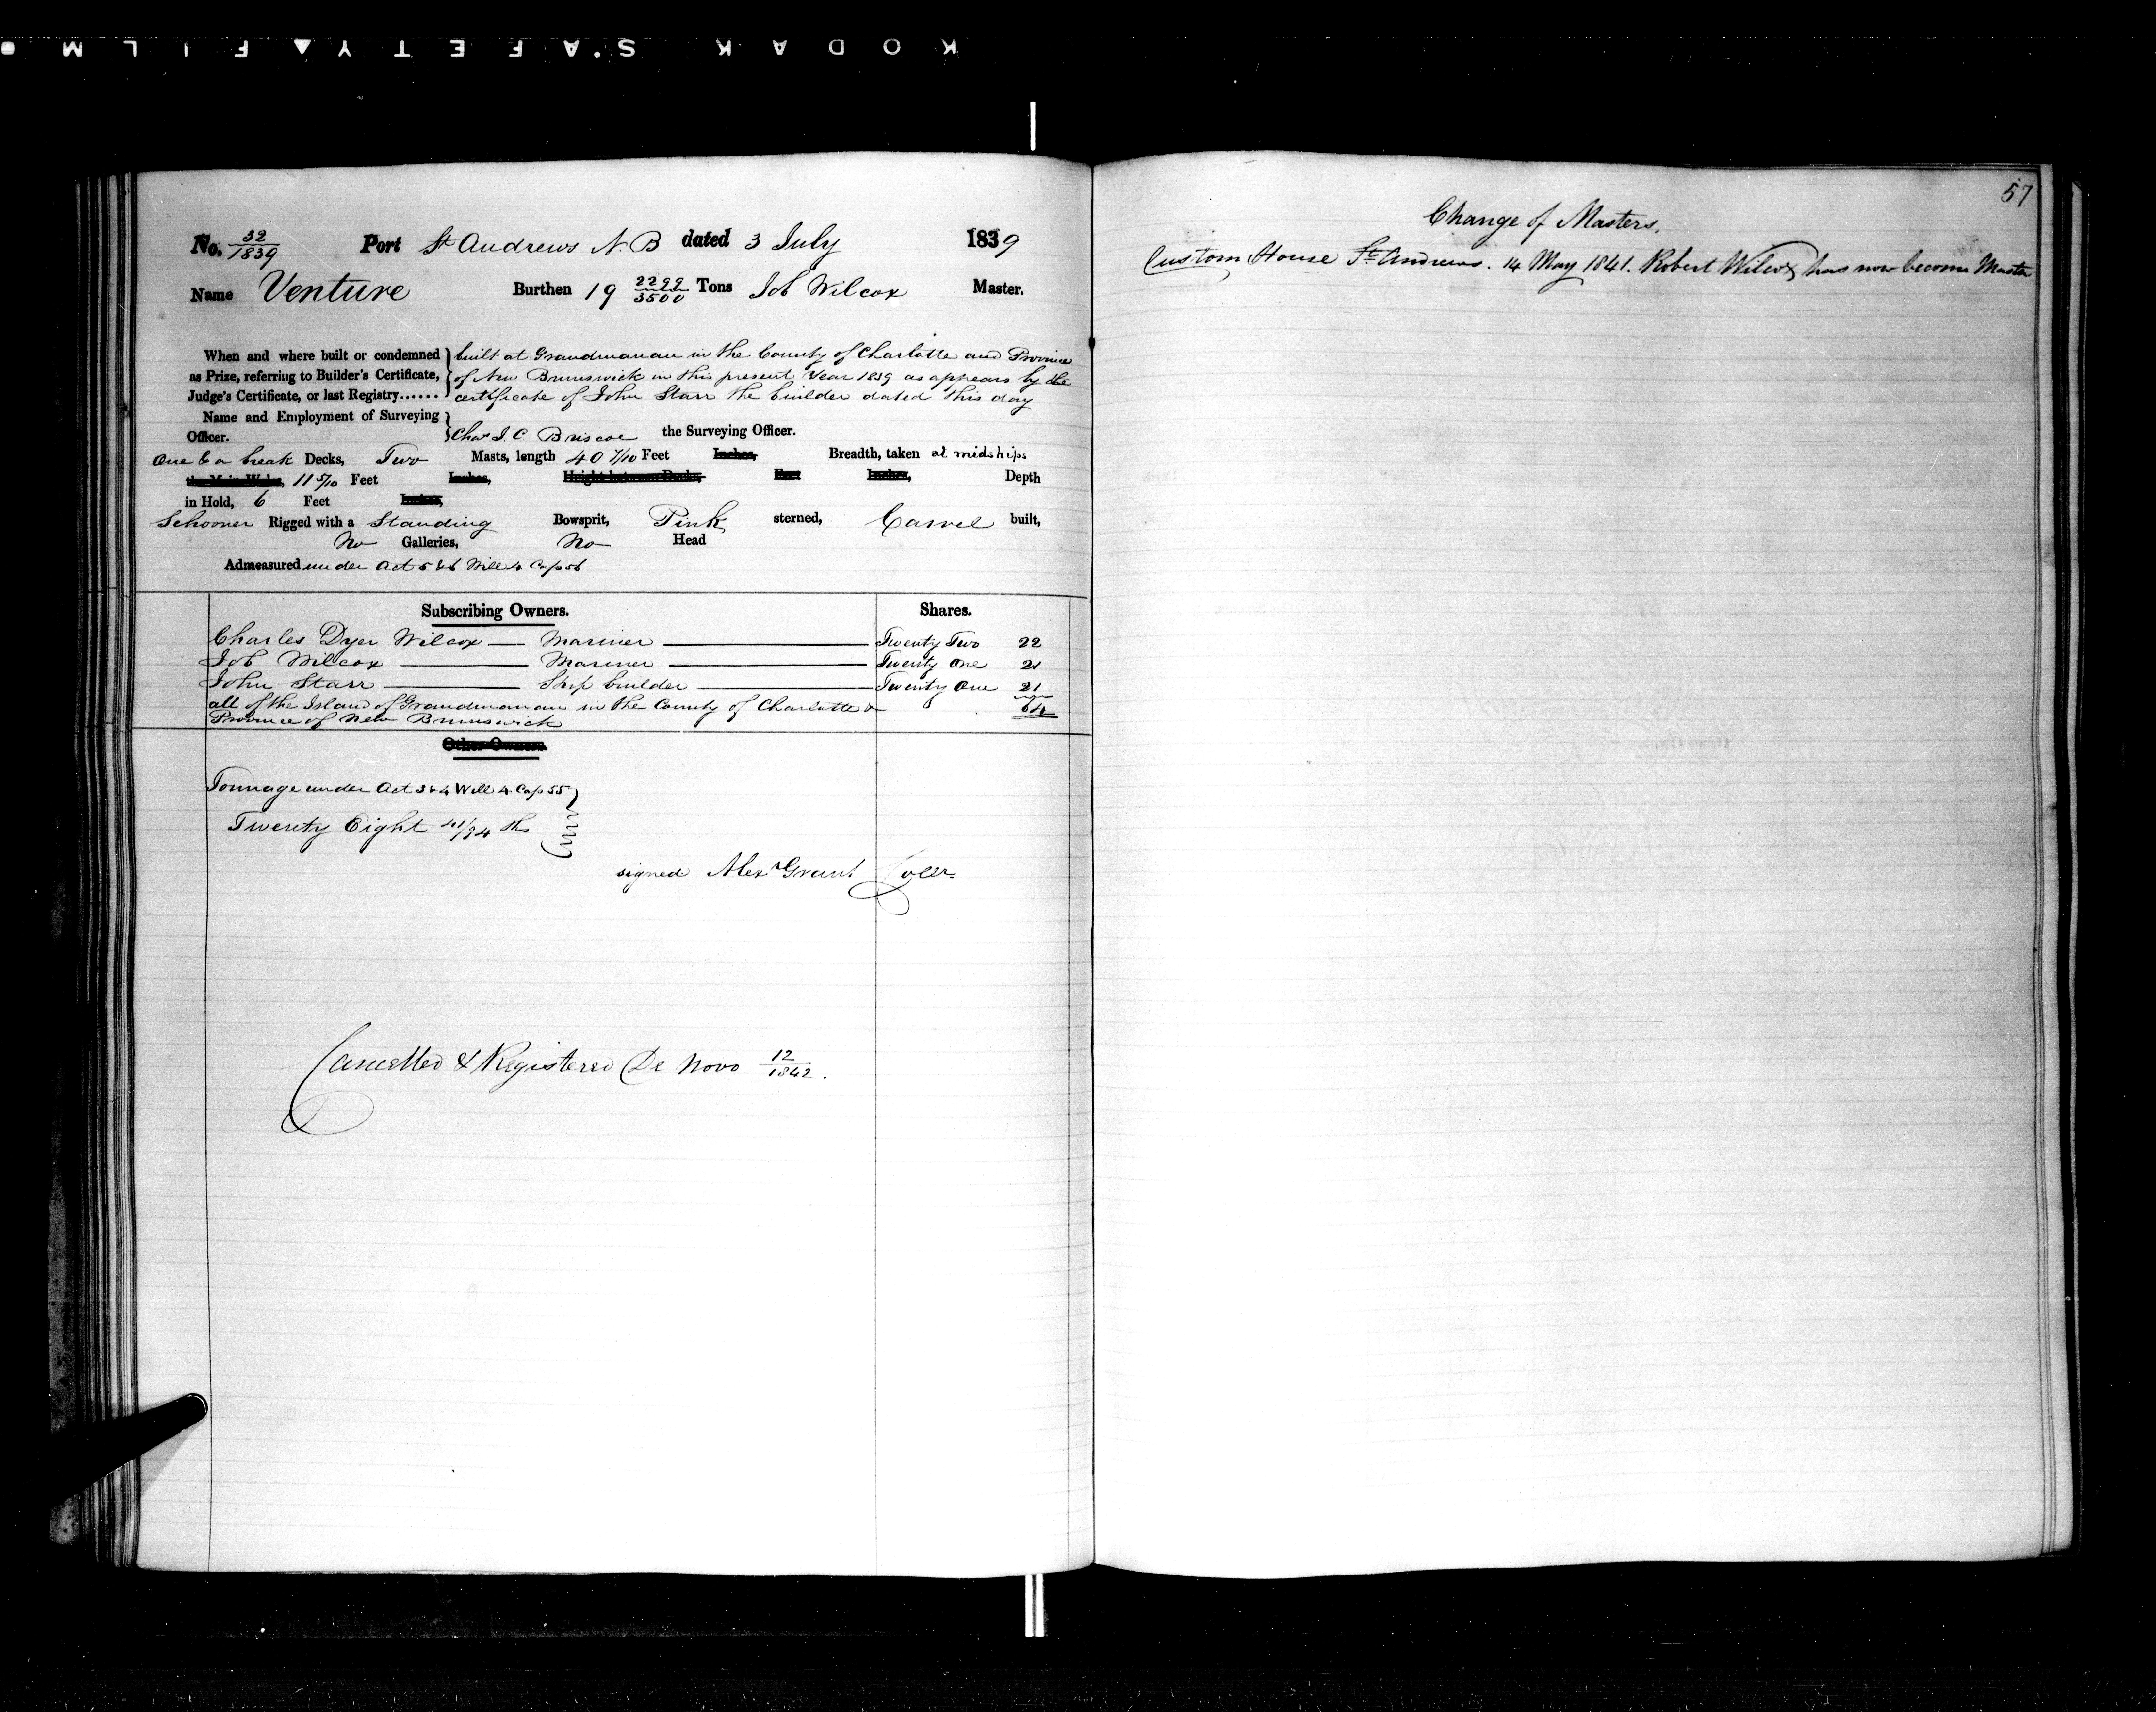 KODAK S'AFETY FILM
No. 32/1839 Port St Andrews N. B dated 3 July 1839
Name Venture Burthen 19 2299/3500 Tons Job Wilcox Master.
When and where built or condemned as Prize, referring to Builder's Certificate, Judge's Certificate, or last Registry......
built at Grandmanan in the County of Charlotte and Province
of New Brunswick in this present Year 1839 as appears by the
certificate of John Starr the builder dated this day
Name and Employment of Surveying
Officer. Chas J. C. Briscoe the Surveying Officer.
One & a break Decks, Two Masts, length 40 7/10 Feet Inches, Breadth, taken at midships
the Main Wales, 11 5/10 Feet Inches, Height between Decks, Feet Inches, Depth
in Hold, 6 Feet Inches,
Schooner Rigged with a Standing Bowsprit, Pink sterned, Carvel built,
No Galleries, No Head
Admeasured under Act 5 & 6 Will 4 Cap 56
Subscribing Owners. Shares.
Charles Dyer Wilcox — Mariner — Twenty Two 22
Job Wilcox — Mariner — Twenty One 21
John Starr — Ship builder — Twenty One 21
all of the Island of Grandmanan in the County of Charlotte & 64
Province of New Brunswick
Other Owners.
Tonnage under Act 3 & 4 Will 4 Cap 55
Twenty Eight 41/94 ths
signed Alexr Grant Collr
Cancelled & Registered De Novo 12/1842.
57
Change of Masters.
Custom House St Andrews. 14 May 1841. Robert Wilcox has now become Master